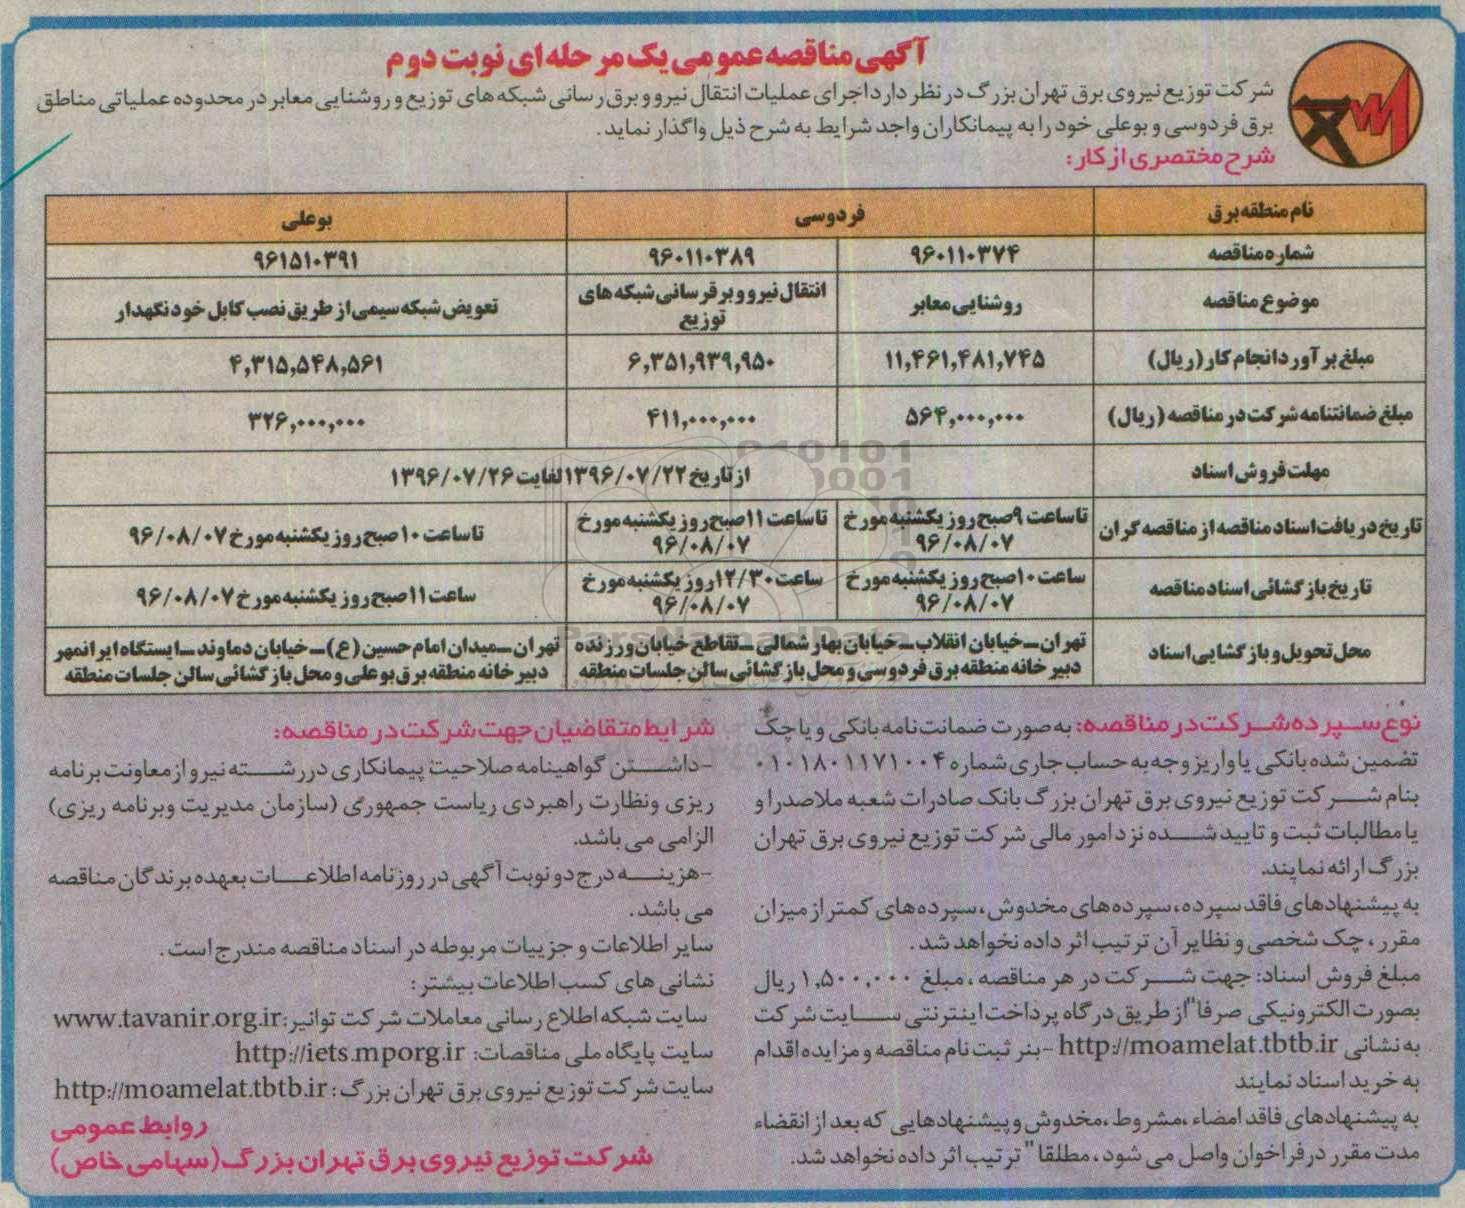 آگهی مناقصه عمومی یک مرحله ای نوبت دوم
شرکت توزیع نیروی برق تهران بزرگ در نظر دارد اجرای عملیات انتقال نیرو و برق رسانی شبکه های توزیع و روشنایی معابر در محدوده عملیاتی مناطق
برق فردوسی و بوعلی خود را به پیمانکاران واجد شرایط به شرح ذیل واگذار نماید.
شرح مختصری از کار:
نام منطقه برق فردوسی بوعلی
شماره مناقصه ۹۶۰۱۱۰۳۷۴ ۹۶۰۱۱۰۳۸۹ ۹۶۱۵۱۰۳۹۱
موضوع مناقصه روشنایی معابر انتقال نیرو و برقرسانی شبکه های توزیع تعویض شبکه سیمی از طریق نصب کابل خودنگهدار
مبلغ برآورد انجام کار (ریال) ۱۱,۴۶۱,۴۸۱,۷۴۵ ۶,۳۵۱,۹۳۹,۹۵۰ ۴,۳۱۵,۵۴۸,۵۶۱
مبلغ ضمانتنامه شرکت در مناقصه (ریال) ۵۶۴,۰۰۰,۰۰۰ ۴۱۱,۰۰۰,۰۰۰ ۳۲۶,۰۰۰,۰۰۰
مهلت فروش اسناد از تاریخ ۱۳۹۶/۰۷/۲۲ لغایت ۱۳۹۶/۰۷/۲۶
تاریخ دریافت اسناد مناقصه از مناقصه گران تا ساعت ۹ صبح روز یکشنبه مورخ ۹۶/۰۸/۰۷ تا ساعت ۱۱ صبح روز یکشنبه مورخ ۹۶/۰۸/۰۷ تا ساعت ۱۰ صبح روز یکشنبه مورخ ۹۶/۰۸/۰۷
تاریخ بازگشائی اسناد مناقصه ساعت ۱۰ صبح روز یکشنبه مورخ ۹۶/۰۸/۰۷ ساعت ۱۲/۳۰ روز یکشنبه مورخ ۹۶/۰۸/۰۷ ساعت ۱۱ صبح روز یکشنبه مورخ ۹۶/۰۸/۰۷
محل تحویل و بازگشایی اسناد تهران ـ خیابان انقلاب ـ خیابان بهار شمالی ـ تقاطع خیابان ورزنده دبیرخانه منطقه برق فردوسی و محل بازگشائی سالن جلسات منطقه تهران ـ میدان امام حسین (ع) ـ خیابان دماوند ـ ایستگاه ایرانمهر دبیرخانه منطقه برق بوعلی و محل بازگشائی سالن جلسات منطقه
نوع سپرده شرکت در مناقصه: به صورت ضمانت نامه بانکی و یا چک
تضمین شده بانکی یا واریز وجه به حساب جاری شماره ۰۱۰۱۸۰۱۱۷۱۰۰۴
بنام شرکت توزیع نیروی برق تهران بزرگ بانک صادرات شعبه ملاصدرا و
یا مطالبات ثبت و تایید شده نزد امور مالی شرکت توزیع نیروی برق تهران
بزرگ ارائه نمایند.
به پیشنهادهای فاقد سپرده، سپرده های مخدوش، سپرده های کمتر از میزان
مقرر، چک شخصی و نظایر آن ترتیب اثر داده نخواهد شد.
مبلغ فروش اسناد: جهت شرکت در هر مناقصه، مبلغ ۱,۵۰۰,۰۰۰ ریال
بصورت الکترونیکی صرفا" از طریق درگاه پرداخت اینترنتی سایت شرکت
به نشانی http://moamelat.tbtb.ir -بنر ثبت نام مناقصه و مزایده اقدام
به خرید اسناد نمایند
به پیشنهادهای فاقد امضاء، مشروط، مخدوش و پیشنهادهایی که بعد از انقضاء
مدت مقرر در فراخوان واصل می شود، مطلقا" ترتیب اثر داده نخواهد شد.
شرایط متقاضیان جهت شرکت در مناقصه:
-داشتن گواهینامه صلاحیت پیمانکاری در رشته نیرو از معاونت برنامه
ریزی ونظارت راهبردی ریاست جمهوری (سازمان مدیریت وبرنامه ریزی)
الزامی می باشد.
-هزینه درج دو نوبت آگهی در روزنامه اطلاعات بعهده برندگان مناقصه
می باشد.
سایر اطلاعات و جزییات مربوطه در اسناد مناقصه مندرج است.
نشانی های کسب اطلاعات بیشتر:
سایت شبکه اطلاع رسانی معاملات شرکت توانیر: www.tavanir.org.ir
سایت پایگاه ملی مناقصات: http://iets.mporg.ir
سایت شرکت توزیع نیروی برق تهران بزرگ: http://moamelat.tbtb.ir
روابط عمومی
شرکت توزیع نیروی برق تهران بزرگ (سهامی خاص)
ParsNamadData